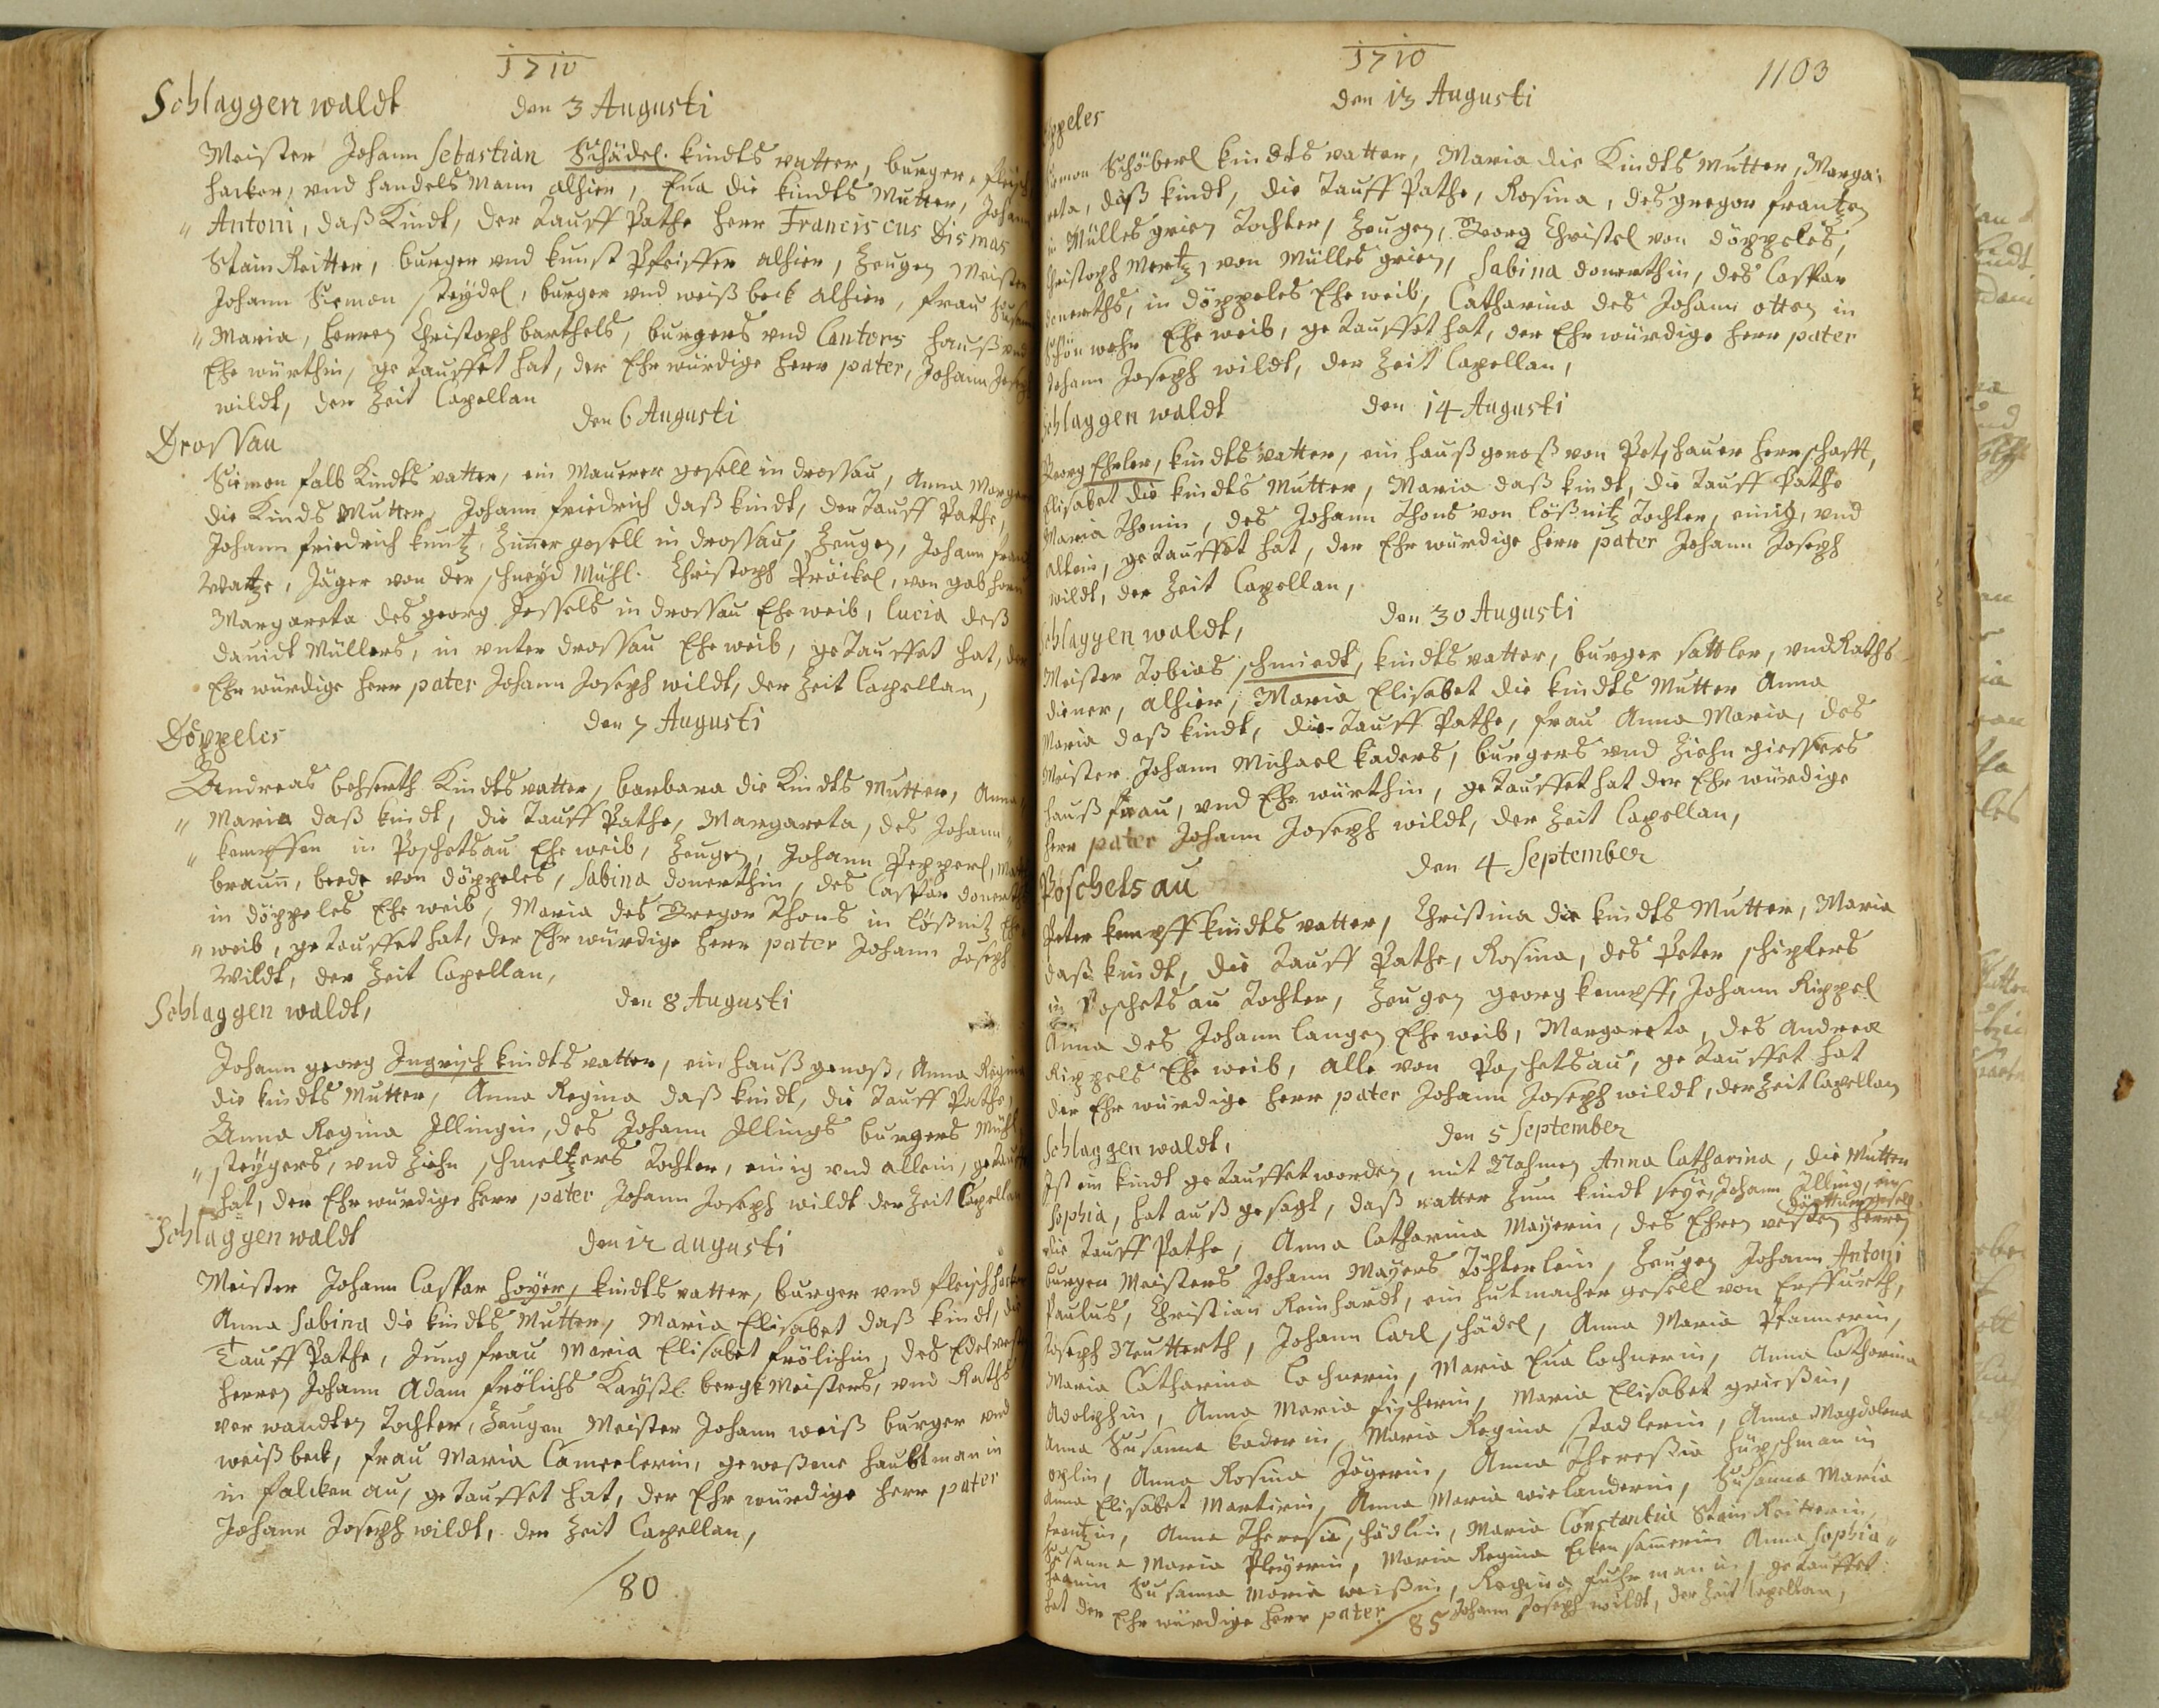 1710
Schlaggenwaldt den 3 Augusti
Meister Johann Sebastian Schädel kindts vatter, burger, fleisch
hacker, vnd handels Mann alhier, Eua die kindts Mutter, Johann
Antoni, daß Kindt, der Tauff Pathe herr Franciscus Dismas
StainReitter, burger vnd kunst Pfeiffer alhier, Zeugen Meister
Johann Siemon steydel, burger vnd weißbeck alhier, frau
Maria, herren Christoph barthels, burgers vnd Cantors hauß vnd
Ehe würthin, getauffet hat, der Ehr würdige herr pater, Johann Joseph
wildt, der Zeit Capellan
den 6 Augusti
Drossau
Siemon falb Kindts vatter, ein Maurer gesell in drossau, Anna
die Kinds Mutter, Johann friedrich daß kindt, der Tauff Pathe,
Johann friedrich kuntz, Zimer gesell in drossau, Zeugen, Johann
Watze, Jäger von der schneyd Mühl. Christoph Pröckel, von
Margareta des georg Jessels in drossau Ehe weib, lucia deß
dauidt Müllers, in vnter drossau Ehe weib, getauffet hat, der
Ehr würdige herr pater Johann Joseph wildt, der Zeit Capellan,
Döppeles den 7 Augusti
Andreas Kindts vatter, barbara die Kindts Mutter, Anna
Maria daß kindt, die Tauff Pathe, Margareta, des Johann
kempffen in Poschetsau Ehe weib, Zeugen, Johann Pepperl,
braun, beede von döppeles, Sabina donerthin, des Caspar
in döppeles Ehe weib, Maria des Gregor Thons in lößnitz Ehe
weib, getauffet hat, der Ehr würdige herr pater Johann Joseph
Wildt, der Zeit Capellan,
Schlaggenwaldt, den 8 Augusti
Johann georg Ingrisch kindts vatter, ein haußgenoß, Anna Regina
die kindts Mutter, Anna Regina daß kindt, die Tauff Pathe,
Anna Regina Illingin, des Johann Illings burgers Mühl
steygers, vnd Ziehn schmeltzers Tochter, einig vnd allein,
hat, der Ehr würdige herr pater Johann Joseph wildt der Zeit Capellan
Schlaggenwaldt den 12 augusti
Meister Johann Caspar hoyer, kindts vatter, burger vnd fleischhacker
Anna Sabina die kindts Mutter, Maria Elisabet daß kindt, die
Tauff Pathe, Jungfrau Maria Elisabet frölichin, des
herren Johann Adam frölichs Kayßl. bergk Meisters, vnd Raths
ver wandten Tochter, Zeugen Meister Johann weiß burger vnd
weißbeck, frau Maria Camerlerin, geweßene haubtman in
in falckenau, getauffet hat, der Ehr würdige herr pater
Johann Joseph wildt, der Zeit Capellan,
80
1710 1103
den 13 Augusti
Schöberl kindts vatter, Maria die Kindts Mutter, Marga
reta, daß kindt, die Tauff Pathe, Rosina, des gregor frantzen
in Mülles grien Tochter, Zeugen, Georg Christel von döppeles,
Christoph Mertz, von Mülles grien, Sabina donerthin, des Caspar
donerths, in döppeles Ehe weib, Catharina des Johann otten in
schön wehr Ehe weib, getauffet hat, der Ehr würdige herr pater
Johann Joseph wildt, der Zeit Capellan,
Schlaggenwaldt den 14 Augusti
Georg Ehrler, kindts vatter, ein haußgenoß von Petschauer herrschafft,
Elisabet die kindts Mutter, Maria daß kindt, die Tauff Pathe
Maria Thonin, des Johann Thons von lößnitz Tochter, einig, vnd
allein, getauffet hat, der Ehr würdige herr pater Johann Joseph
wildt, der Zeit Capellan,
Schlaggenwaldt, den 30 Augusti
Meister Tobias schmiedt, kindts vatter, burger sattler, vnd Raths
diener, alhier, Maria Elisabet die kindts Mutter Anna
Maria daß kindt, die Tauff Pathe, frau Anna Maria, des
Meister Johann Michael kaders, burgers vnd Ziehn giessers
hauß frau, vnd Ehe würthin, getauffet hat der Ehr würdige
herr pater Johann Joseph wildt, der Zeit Capellan,
den 4 September
Poschetsau
Peter kempff kindts vatter, Christina die kindts Mutter, Maria
daß kindt, die Tauff Pathe, Rosina, des Peter schiplers
in Poschetsau Tochter, Zeugen georg kempff, Johann Rippel
Anna des Johann langen Ehe weib, Margareta, des Andrea
Rippels Ehe weib, alle von Poschetsau, getauffet hat
der Ehr würdige herr pater Johann Joseph wildt, der Zeit Capellan
Schlaggenwaldt, den 5 September
Ist ein kindt getauffet worden, mit Nahmen Anna Catharina, die Mutter
Sophia, hat auß gesagt, daß vatter zum kindt seye, Johann Illing, ein
gesell
die Tauff Pathe, Anna Catharina Mayerin, des Ehren vesten herren
burger Meisters Johann Mayers Töchterlein, Zeugen Johann Antoni
Paulus, Christian Reinhardt, ein hutmacher gesell von Erffurth,
Joseph Neutterth, Johann Carl schädel, Anna Maria Pfannerin,
Maria Catharina Lochnerin, Maria Eua lochnerin, Anna Catharina
Adolphin, Anna Maria fischerin, Maria Elisabet grießin,
Anna Susanna kaderin, Maria Regina stadlerin, Anna Magdalena
oplin, Anna Rosina Jägerin, Anna Theresia hüpschmanin
Anna Elisabet Martinin, Anna Maria wielanderin, Susanna Maria
frantzin, Anna Theresia schädlin, Maria Constantia StainReitterin,
Susanna Maria Pleyerin, Maria Regina Anna Sophia
Susanna Maria weißin, Regina fuhrmanin, getauffet
hat der Ehr würdige herr pater Johann Joseph wildt, der Zeit Capellan,
85